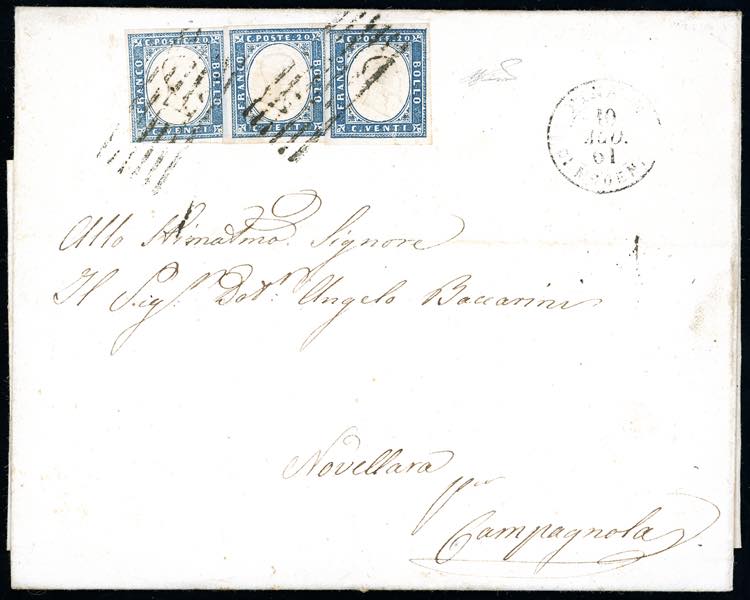 C. POSTE. 20. C. POSTE. 20. C. POSTE. 20.
FRANCO BOLLO FRANCO BOLLO FRANCO BOLLO
C. VENTI. C. VENTI. C. VENTI.
10
AGO.
61
Allo Stimatmo. Signore
Il Sigr. Dotr. Angelo Baccarini
Novellara
per
Campagnola